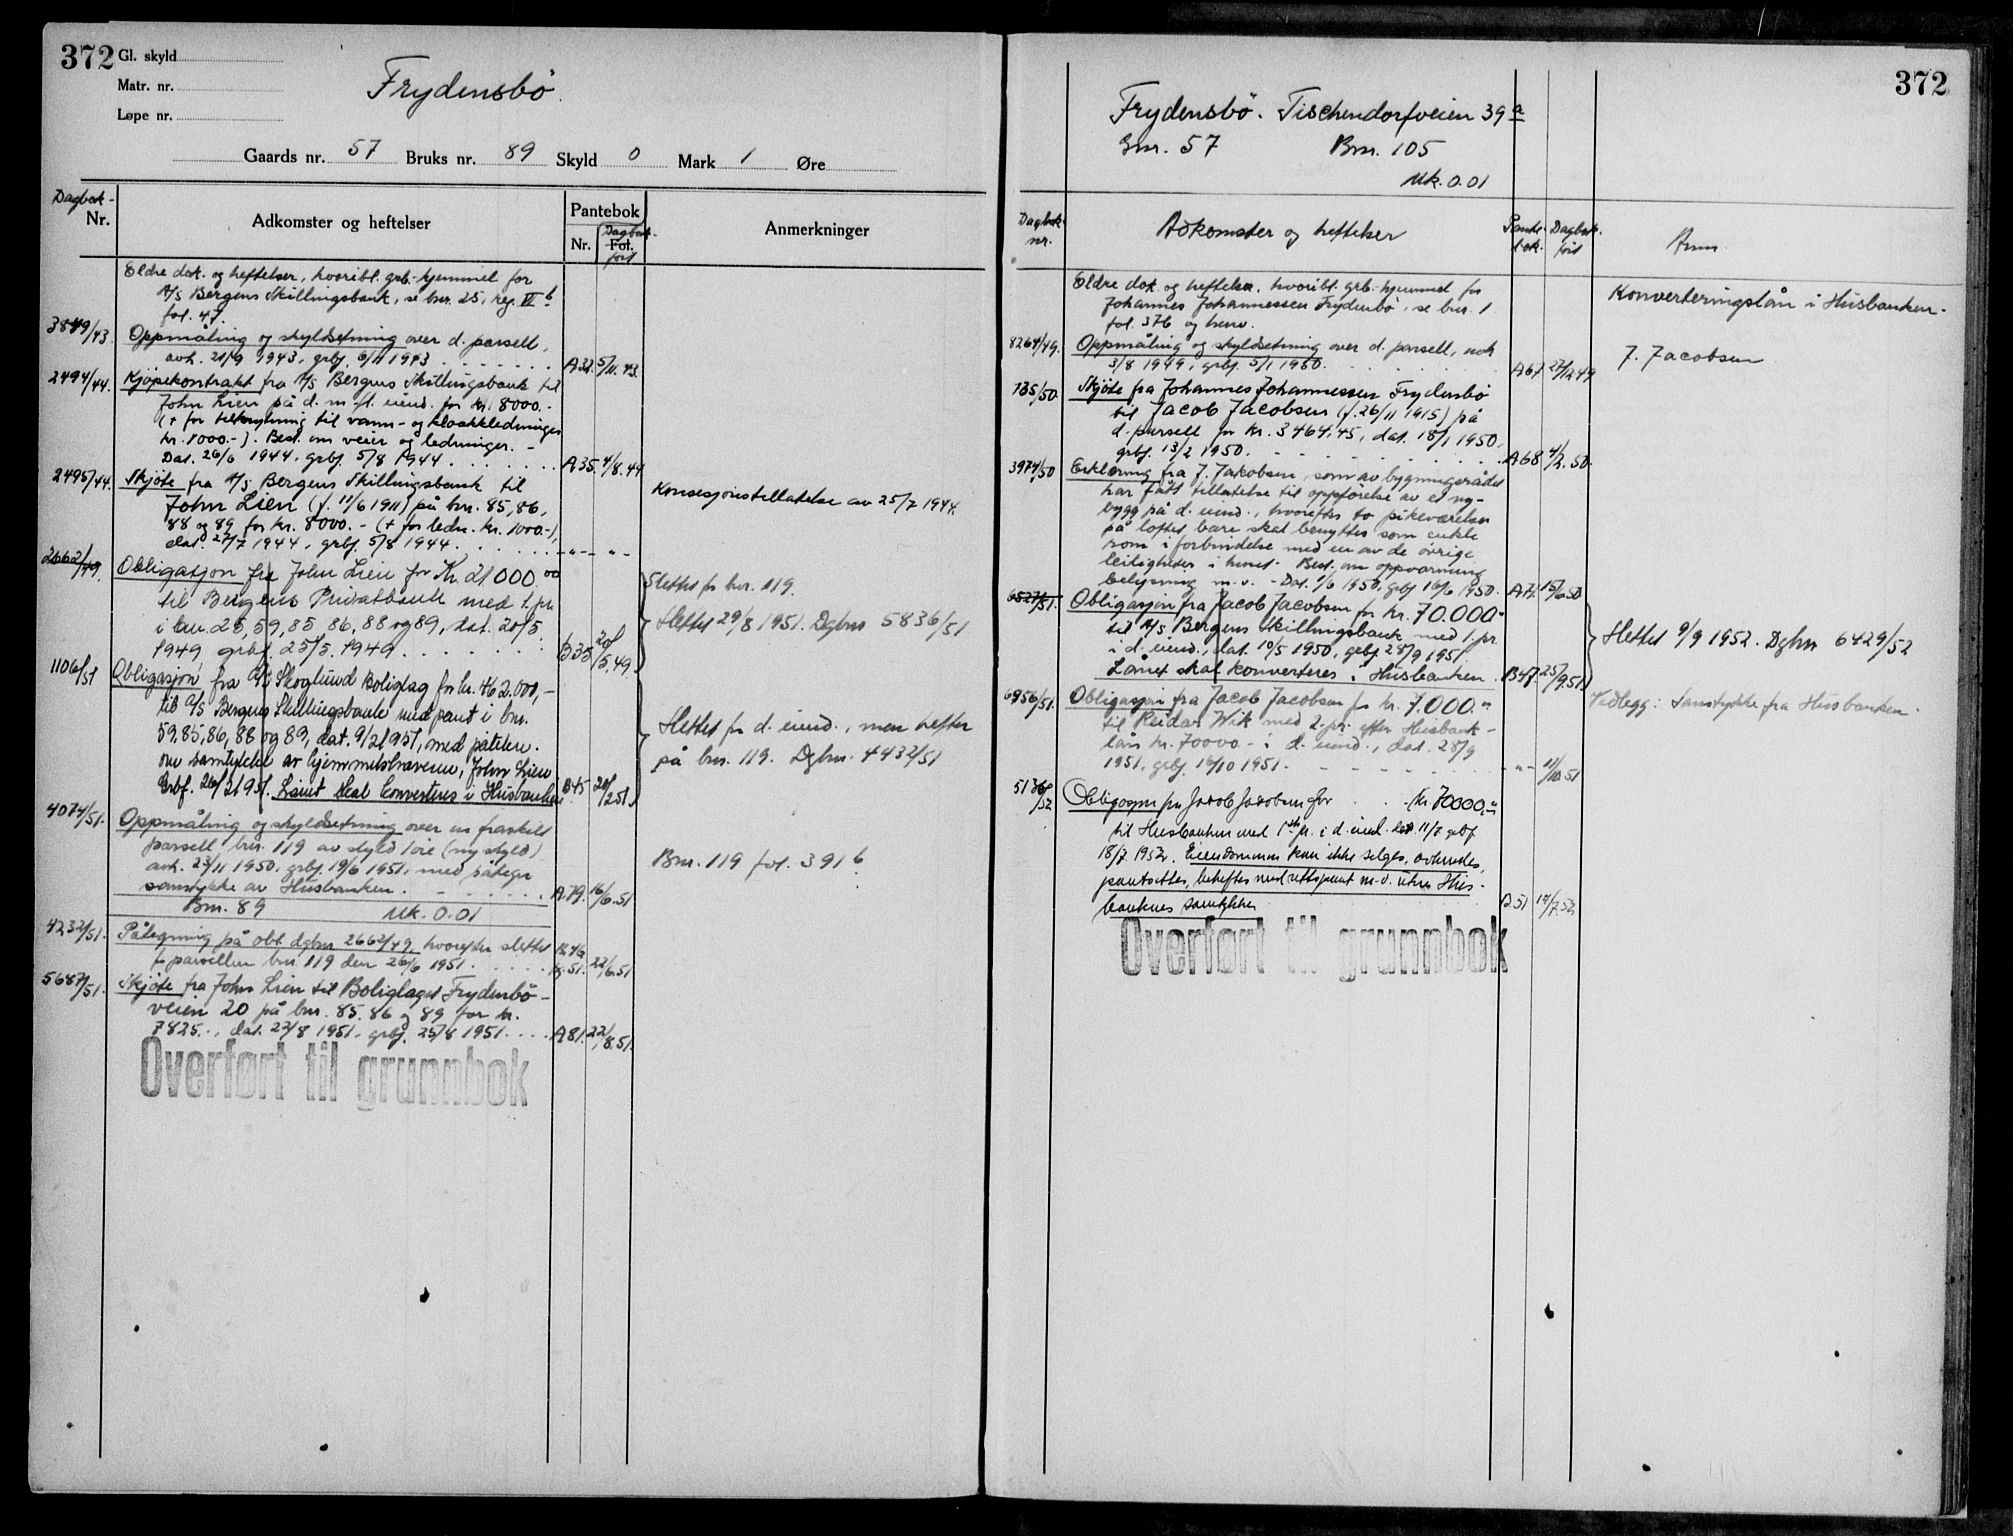 372 Gl. skyld
Matr. nr.
Løpe nr.
Frydensbö.
Gaards nr. 57 Bruks nr. 89 Skyld 0 Mark 1 Øre
Dagbok-
Nr.
Adkomster og heftelser
Pantebok
Nr. Dagbok-
Fol.
ført
Anmerkninger
Eldre dok. og heftelser, hvoribl. grb. hjemmel for
A/S Bergens Skillingsbank, se bnr. 25, reg. VI b
fol. 47.
3849/43. Oppmåling og skyldsetning over d. parsell,
avh. 21/9 1943, grbf. 6/11 1943 A32 5/11.43.
2494/44. Kjöpekontrakt fra A/S Bergens Skillingsbank til
John Lien på d. m. fl. eiend. for kr. 8000.-
(+ for tilknytning til vann- og kloakkledninger
kr. 1000.-). Best. om veier og ledninger. -
Dat. 26/6 1944, grbf. 5/8 1944 A35. 4/8.44
2495/44. Skjöte fra A/S Bergens Skillingsbank til
John Lien (f. 11/6 1911) på bnr. 85, 86,
88 og 89 for kr. 8000.- (+ for ledn. kr. 1000.-),
dat. 27/7 1944, grbf. 5/8 1944. -"- -"-
Konsesjonstillatelse av 25/7 1944.
2662/49. Obligasjon fra John Lien for Kr. 21 000.00
til Bergens Privatbank med 1. pr.
i bnr. 25, 59, 85 86, 88 og 89, dat. 20/5.
1949 grbf. 25/5. 1949 B.35 20/5.49.
Slettet fr bnr. 119.
Slettet 29/8 1951. Dgbnr 5836/51
1106/51 Obligasjon fra A/L Skoglund Boliglag for kr. 462.000,-
til A/S Bergens Skillingsbank med pant i bnr.
59, 85, 86, 88 og 89, dat. 9/2 1951, med påtekn.
om samtykke av hjemmelshaveren, John Lien
Grbf. 26/2 1951. Lånet skal konverteres i Husbanken B45 20/2 51
Slettet fr d. eiend., men hefter
på bnr. 119. Dgbnr. 4432/51
4074/51. Oppmåling og skyldsetning over en fraskilt
parsell bnr. 119 av skyld 1 öre (ny skyld)
avh. 23/11 1950, grbf. 19/6 1951, med påtegn
samtykke av Husbanken. A.79. 16/6.51
Bnr. 119 fol. 391 b.
Bnr. 89 Mk. 0.01
4232/51. Påtegning på obl. dgbnr 2662/49, hvorefter slettet
fr parsellen bnr. 119 den 26/6 1951. B.46 22/6.51
5687/51. Skjöte fra John Lien til Boliglaget Frydenbö-
veien 20 på bnr. 85. 86 og 89 for kr.
7825.-, dat. 22/8 1951, grbf. 25/8 1951. A81. 22/8.51.
Overført til grunnbok
372
Frydensbö. Tischendorfveien 39 a
Gnr. 57 Bnr. 105
Mk. 0.01
Dagbok
nr.
Adkomster og heftelser
Pante-
bok. Dagbok.
ført
Anm
Eldre dok og heftelser, hvoribl. grb. hjemmel for
Johannes Johannessen Frydenbö, se bnr. 1
fol. 376 og henv.
Konverteringslån i Husbanken.
8264/49. Oppmåling og skyldsetning over d. parsell, avh
3/8 1949, grbf. 5/1 1950. A67 27/12 49
J. Jacobsen
735/50 Skjöte fra Johannes Johannessen Frydensbö
til Jacob Jacobsen (f. 26/11 1915) på
d. parsell for kr. 3464,45, dat. 18/1 1950,
grbf. 13/2 1950. A68 4/2.50.
3974/50 Erklæring fra J. Jakobsen, som av bygningsrådet
har fått tillatelse til oppförelse av et ny-
bygg på d. eiend., hvorefter to pikeværelser
på loftet bare skal benyttes som enkle
rom i forbindelse med en av de övrige
leiligheter i huset. Best. om oppvarming
belysning m.v. - Dat. 1/6 1950, grbf 16/6 1950. A71. 15/6 50
6527/51. Obligasjon fra Jacob Jacobsen for kr. 70.000.-
til A/S Bergens Skillingsbank med 1. pr.
i d. eiend., dat. 10/5 1950, grbf 28/9 1951
Lånet skal konverteres i Husbanken. B47. 25/9.51
Slettet 9/9 1952. Dgbnr 6429/52
6956/51. Obligasjon fra Jacob Jacobsen for kr. 7.000.-
til Reidar Wik med 2. pr. efter Husbank-
lån kr. 70000.- i d. eiend., dat. 28/9
1951, grbf. 16/10 1951. -"- 11/10 51
Vedlegg: Samtykke fra Husbanken.
5136/52 Obligasjon fra Jacob Jacobsen for kr. 70000,-
til Husbanken med 1ste pr. i d. eiend. dat. 11/7 grbf
18/7 1952. Eiendommen kan ikke selges, avhendes,
pantsettes, beheftes med rettspant m.v. uten Hus-
bankens samtykke B.51 14/7 52
Overført til grunnbok